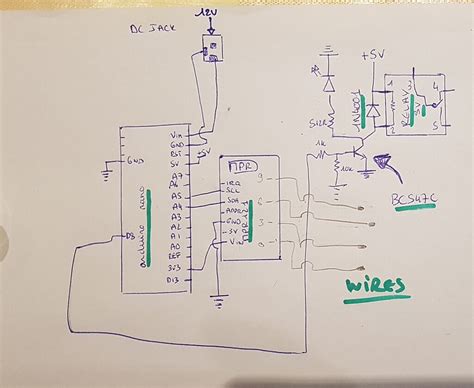 12V
DC JACK
+5V
1N4001
1
2
3
4
5
RELAY
5V
1k
10k
BC547C
Vin
GND
RST
5V
+5V
A7
A6
A5
A4
A3
A2
A1
A0
REF
3V3
D13
GND
D3
arduino nano
MPR
IRQ
SCL
SDA
ADDR
GND
3V
Vin
MPR121
9
6
3
0
WIRES